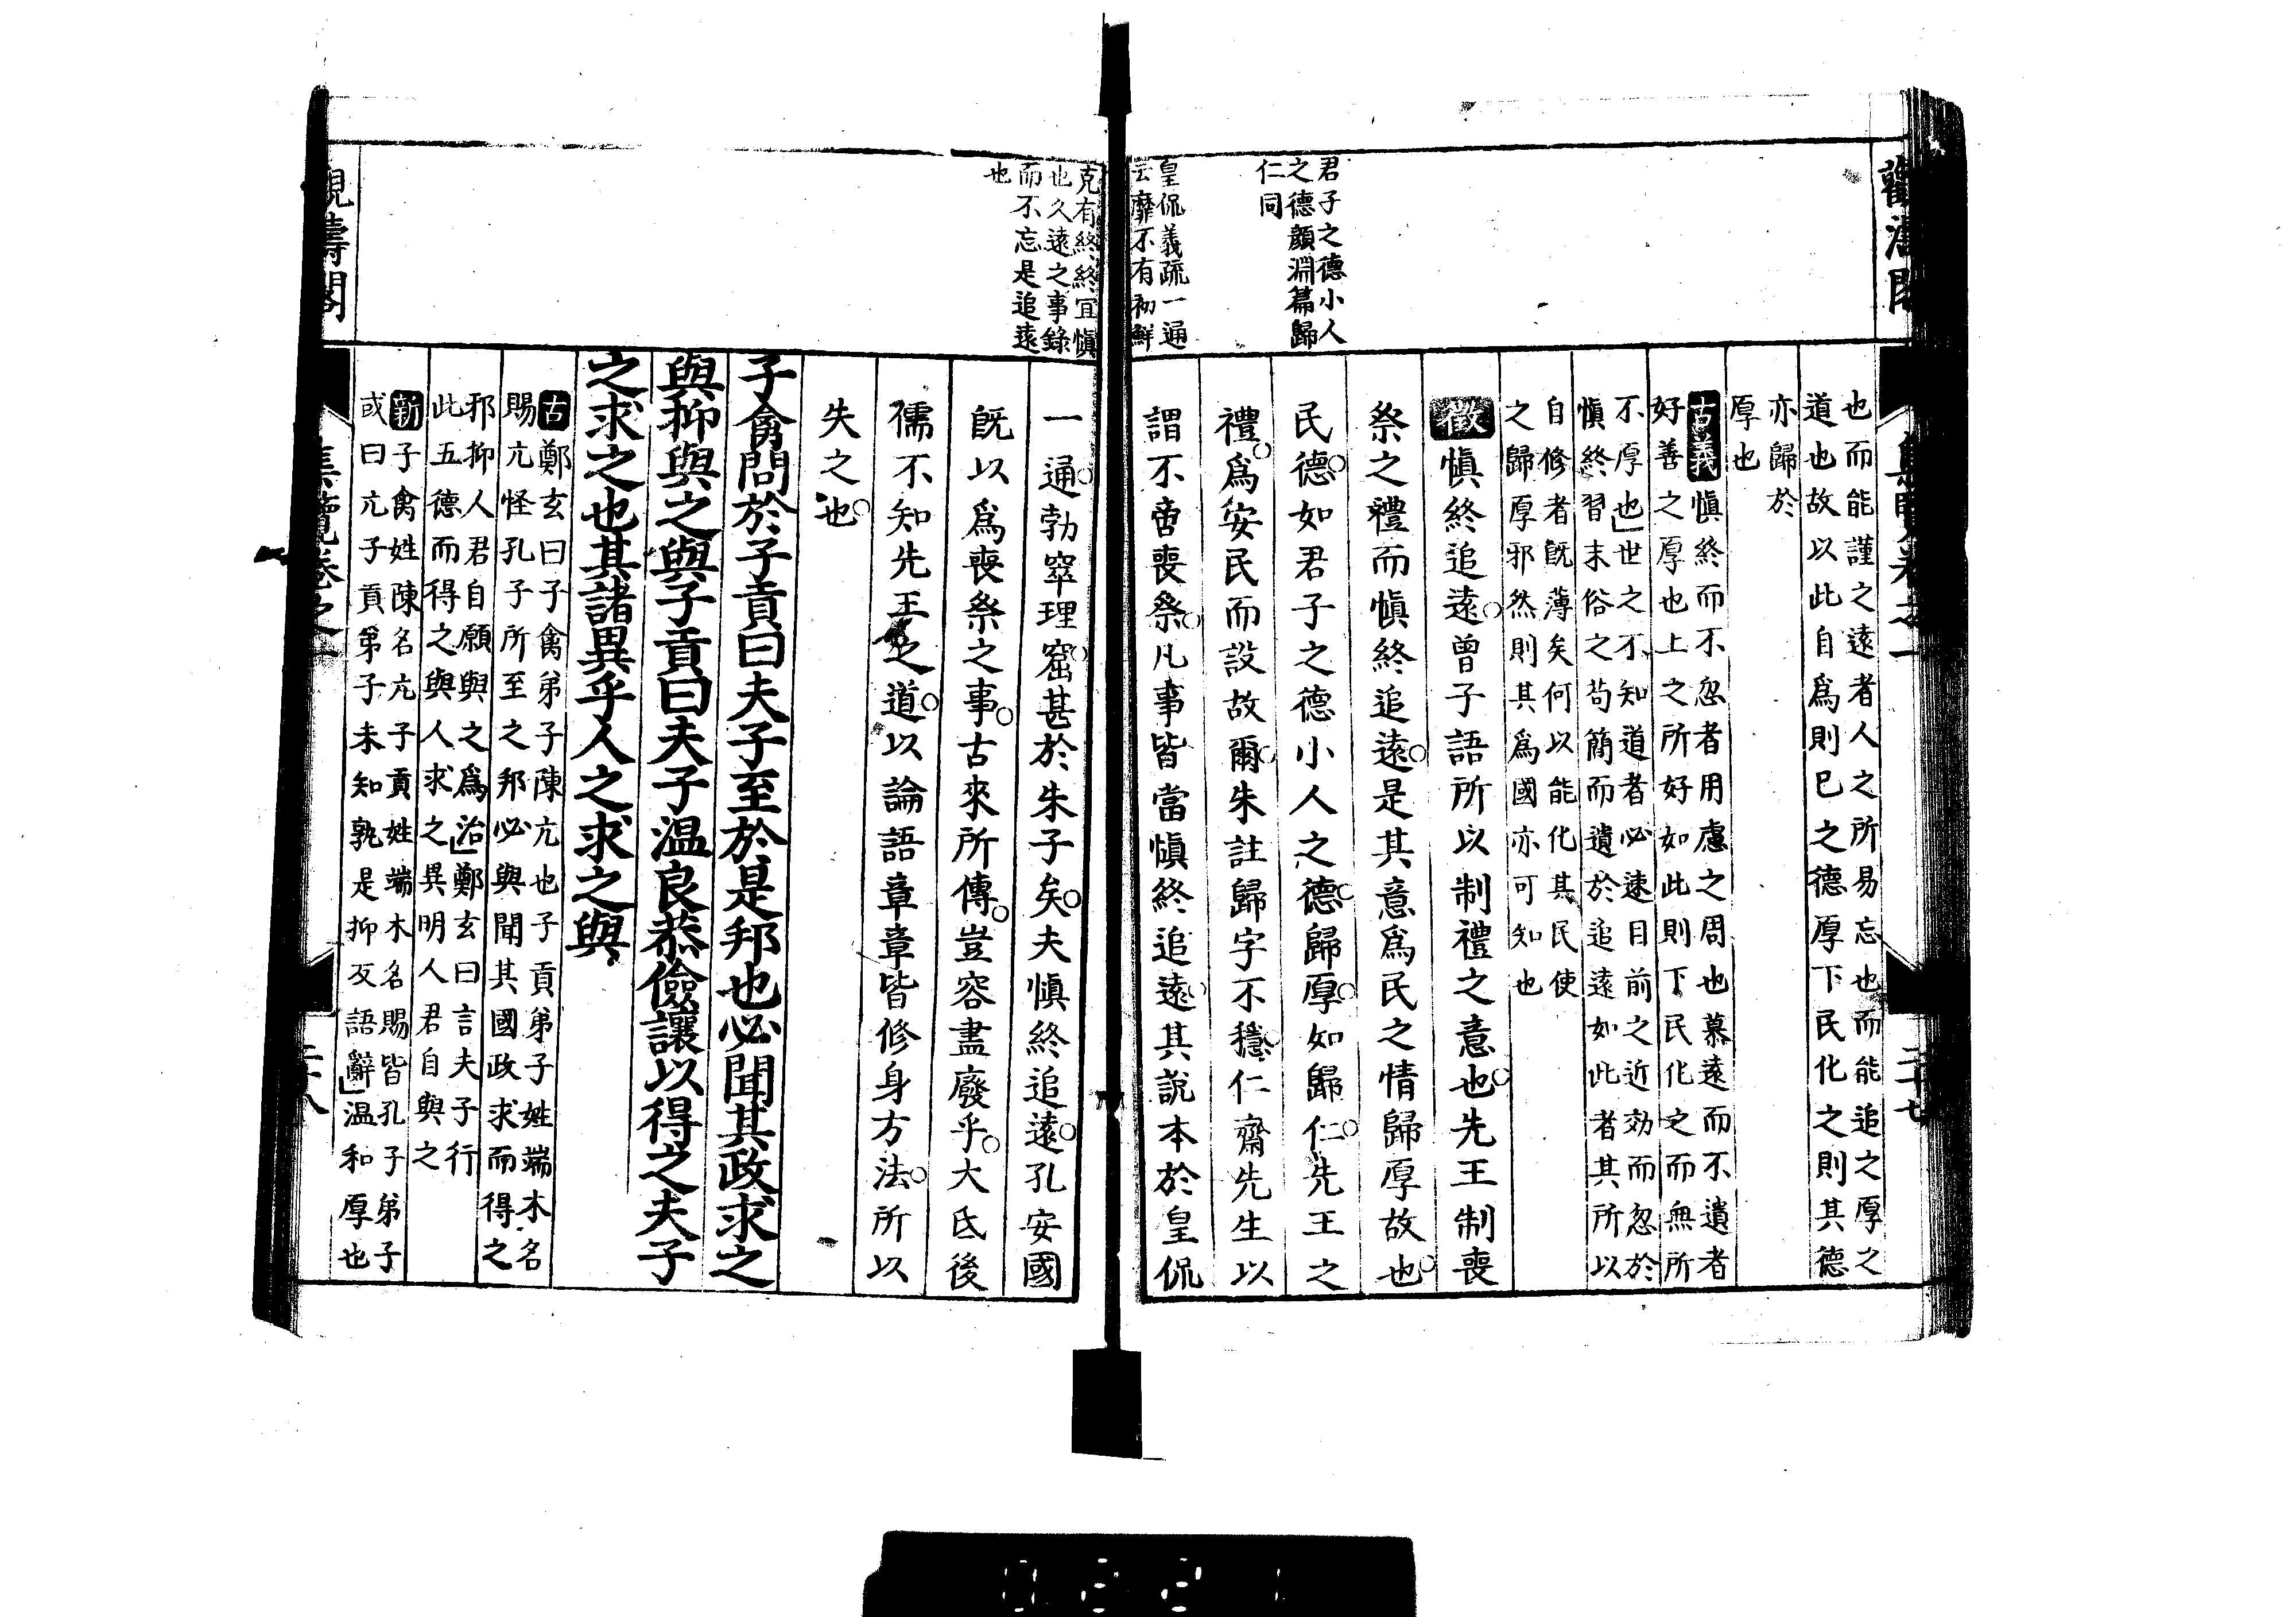 君子之德小人
之德顏淵篇歸
仁同
皇侃義疏一通
云靡不有初鮮
也而能謹之遠者人之所易忘也而能追之厚之
道也故以此自爲則已之德厚下民化之則其德
亦歸於
厚也
古義愼終而不忽者用慮之周也慕遠而不遺者
好善之厚也上之所好如此則下民化之而無所
不厚也世之不知道者必速目前之近効而忽於
愼終習末俗之苟簡而遺於追遠如此者其所以
自修者旣薄矣何以能化其民使
之歸厚邪然則其爲國亦可知也
徵愼終追遠曾子語所以制禮之意也先王制喪
祭之禮而愼終追遠是其意爲民之情歸厚故也
民德如君子之德小人之德歸厚如歸仁先王之
禮爲安民而設故爾朱註歸字不穩仁齋先生以
謂不啻喪祭凡事皆當愼終追遠其說本於皇侃
二十七
克有終終宜愼
也久遠之事錄
而不忘是追遠
也
一通勃窣理窟甚於朱子矣夫愼終追遠孔安國
旣以爲喪祭之事古來所傳豈容盡廢乎大氐後
儒不知先王之道以論語章章皆修身方法所以
失之也
子禽問於子貢曰夫子至於是邦也必聞其政求之
與抑與之與子貢曰夫子温良恭儉讓以得之夫子
之求之也其諸異乎人之求之與
古鄭玄曰子禽弟子陳亢也子貢弟子姓端木名
賜亢怪孔子所至之邦必與聞其國政求而得之
邪抑人君自願與之爲治鄭玄曰言夫子行
此五德而得之與人求之異明人君自與之
新子禽姓陳名亢子貢姓端木名賜皆孔子弟子
或曰亢子貢弟子未知孰是抑反語辭温和厚也
集覽卷之一
觀濤閣